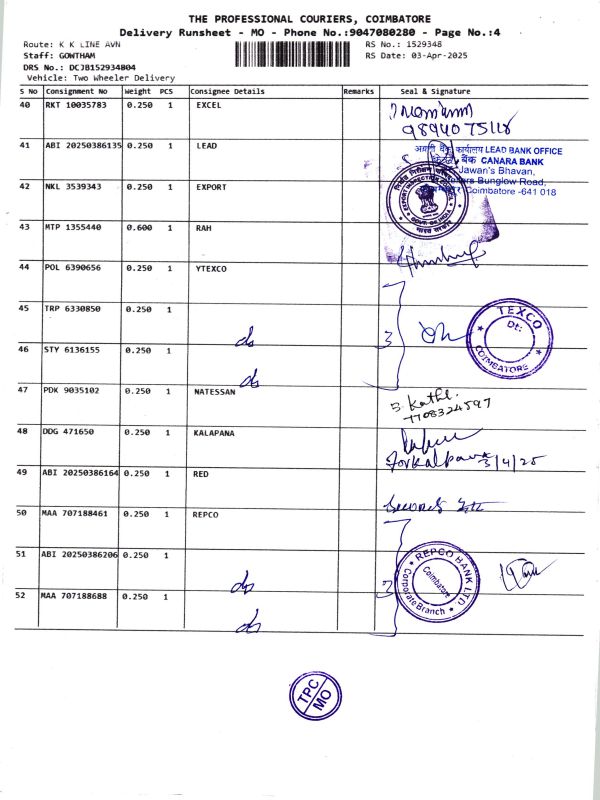 THE PROFESSIONAL COURIERS, COIMBATORE
Delivery Runsheet - MO - Phone No.:9047080280 - Page No.:4
Route: K K LINE AVN
RS No.: 1529348
Staff: GOWTHAM
RS Date: 03-Apr-2025
DRS No.: DCJB152934804
Vehicle: Two Wheeler Delivery
S No Consignment No Weight PCS Consignee Details Remarks Seal & Signature
40 RKT 10035783 0.250 1 EXCEL
9894075118
41 ABI 20250386135 0.250 1 LEAD
अग्रणी बैंक कार्यालय LEAD BANK OFFICE
बैंक CANARA BANK
Jawan's Bhavan,
Bunglow Road,
Coimbatore -641 018
42 NKL 3539343 0.250 1 EXPORT
EXPORT INSPECTION
GOVT. OF INDIA
भारत सरकार
43 MTP 1355440 0.600 1 RAH
44 POL 6390656 0.250 1 YTEXCO
45 TRP 6330850 0.250 1
do
3
TEXCO
Dt:
COIMBATORE
46 STY 6136155 0.250 1
do
47 PDK 9035102 0.250 1 NATESSAN
S. Kathi.
7708324597
48 DDG 471650 0.250 1 KALAPANA
For Kalpana 3/4/25
49 ABI 20250386164 0.250 1 RED
50 MAA 707188461 0.250 1 REPCO
51 ABI 20250386206 0.250 1
do
3
REPCO BANK LTD.
Coimbatore
Corporate Branch
52 MAA 707188688 0.250 1
do
TPC
MO